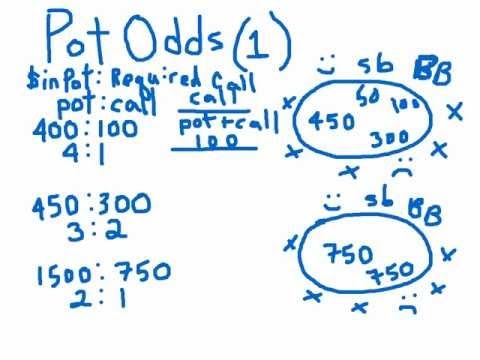 Pot Odds (1)
$inPot: Required Call
pot:call
call
pot+call
100
400:100
4:1
450:300
3:2
1500:750
2:1
sb BB
50 100
450
300
sb BB
750
750